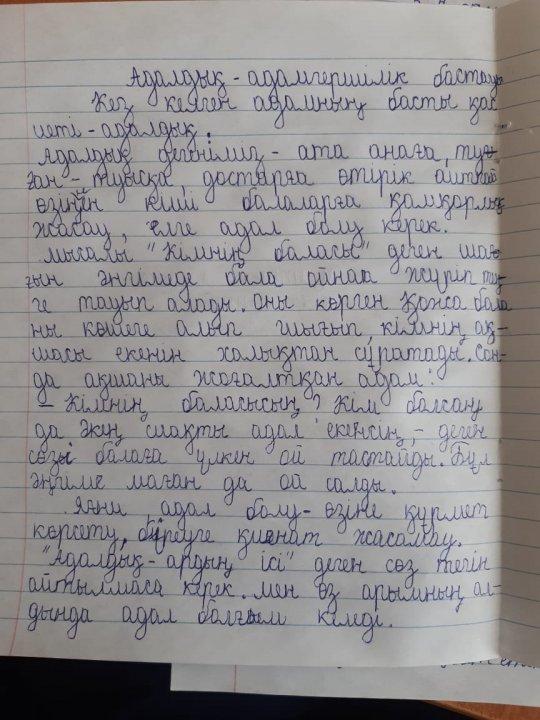 Адалдық - адамгершілік бастауы
Кез келген адамның басты қас
иеті - адалдық.
Адалдық дегеніміз - ата анаға, туғ-
ған - туысқа, достарға өтірік айтпай
өзіңнен кіші балаларға қамқорлық
жасау, елге адал болу керек.
мысалы "Кімнің баласы" деген шағ-
ын әңгімеде бала ойнап жүріп тү-
ге тауып алады. Оны көрген Қонса бала
ны көшеге алып шығып, кімнің ақ-
шасы екенін халықтан сұратады. Сон-
да ақшаны жоғалтқан адам:
- Кімнің баласысың? Кім болсаң
да әкең сияқты адал екенсің, - деген
сөзі балаға үлкен ой тастайды. Бұл
әңгіме маған да ой салды.
Яғни, адал болу - өзіңе құрмет
көрсету, біреуге қиянат жасамау.
"Адалдық - ардың ісі" деген сөз тегін
айтылмаса керек. мен өз арымның ал-
дында адал болғым келеді.